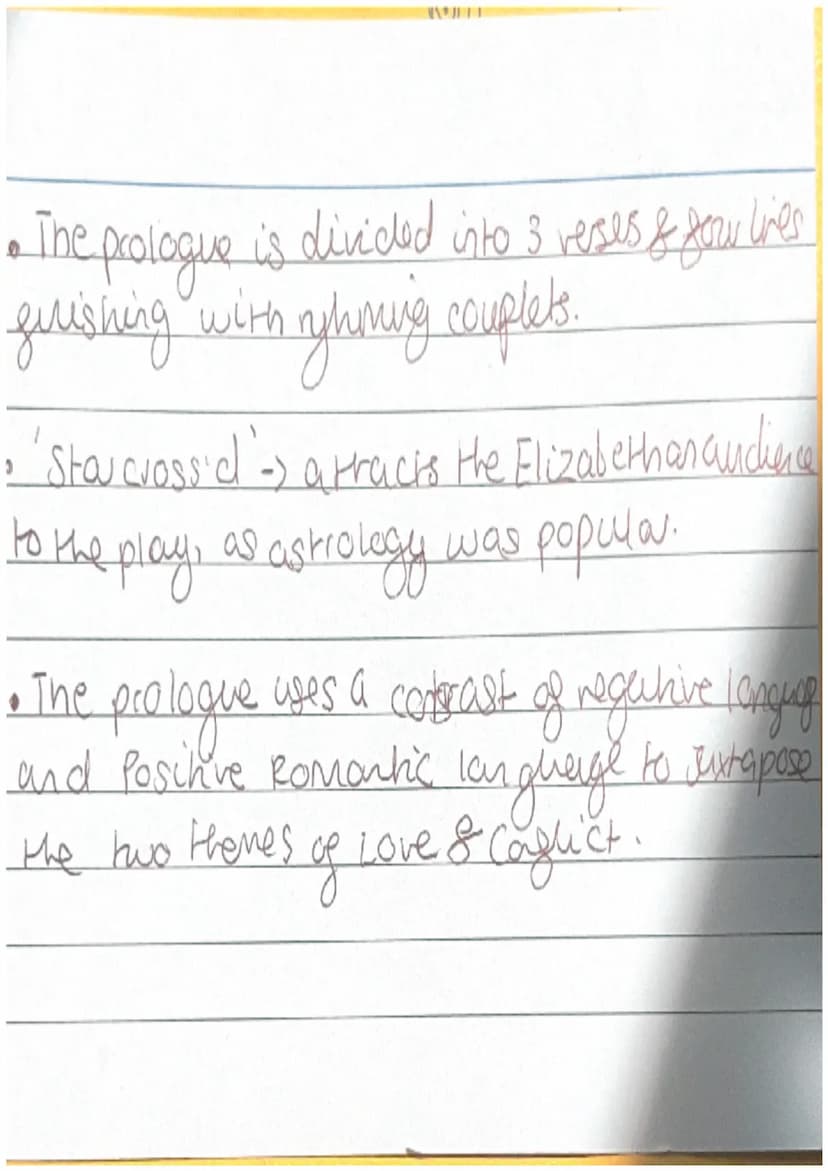 • The prologue is divided into 3 verses & four lines
finishing with ryhming couplets.
• 'Star cross'd' -> attracts the Elizabethan audience
to the play, as astrology was popular.
• The prologue uses a contrast of negative language
and Positive Romantic language to juxtapose
the two themes of Love & Conflict.